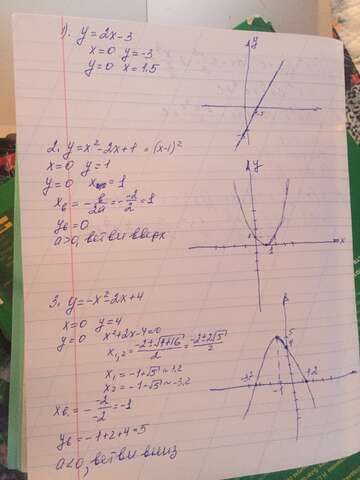 1). y=2x-3
x=0 y=-3
y=0 x=1,5
y
1,5
2. y=x²-2x+1=(x-1)²
x=0 y=1
y=0 x=1
xв=-b/2a=-(-2)/2=1
yв=0
a>0, ветви вверх
y
x
1
3. y=-x²-2x+4
x=0 y=4
y=0 x²+2x-4=0
x1,2=(-2±√4+16)/2=(-2±2√5)/2
x1=-1+√5≈1,2
x2=-1-√5≈-3,2
xв=-(-2)/(-2)=-1
yв=-1+2+4=5
a<0, ветви вниз
5
4
-3,2
-1
1,2